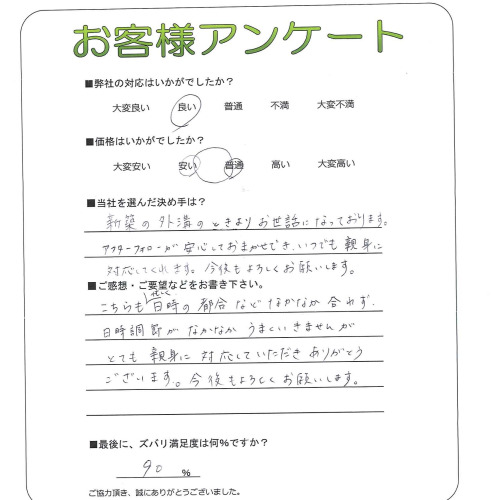 お客様アンケート
■弊社の対応はいかがでしたか？
大変良い　良い　普通　不満　大変不満
■価格はいかがでしたか？
大変安い　安い　普通　高い　大変高い
■当社を選んだ決め手は？
新築の外溝のときよりお世話になっております。
アフターフォローが安心しておまかせでき、いつでも親身に
対応してくれます。今後もよろしくお願いします。
■ご感想・ご要望などをお書き下さい。
こちらも日時の都合などなかなか合わず、
日時調節がなかなかうまくいきませんが
とても親身に対応していただきありがとう
ございます。今後もよろしくお願いします。
■最後に、ズバリ満足度は何％ですか？
90 ％
ご協力頂き、誠にありがとうございました。